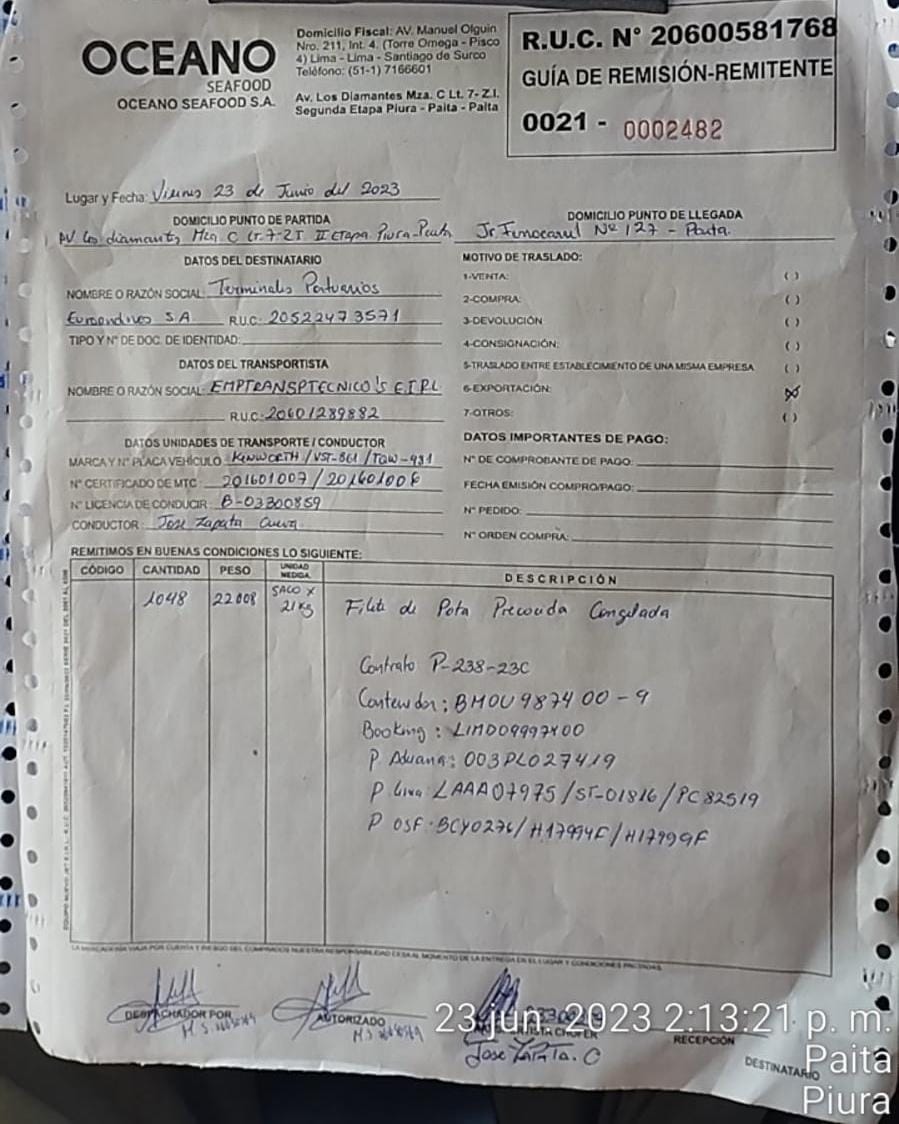 OCEANO
SEAFOOD
OCEANO SEAFOOD S.A.
Domicilio Fiscal: AV. Manuel Olguin
Nro. 211, Int. 4. (Torre Omega - Pisco
4) Lima - Lima - Santiago de Surco
Teléfono: (51-1) 7166601
Av. Los Diamantes Mza. C Lt. 7- Z.I.
Segunda Etapa Piura - Paita - Paita
R.U.C. N° 20600581768
GUÍA DE REMISIÓN-REMITENTE
0021 - 0002482
Lugar y Fecha: Viernes 23 de Junio del 2023
DOMICILIO PUNTO DE PARTIDA
AV. Los diamantes Mza C Lt. 7-ZI II Etapa Piura-Paita
DOMICILIO PUNTO DE LLEGADA
Jr. Ferrocarril Nº 127 - Paita.
DATOS DEL DESTINATARIO
NOMBRE O RAZÓN SOCIAL: Terminales Portuarios
Euroandinos S.A R.U.C: 20522473571
TIPO Y N° DE DOC. DE IDENTIDAD:
DATOS DEL TRANSPORTISTA
NOMBRE O RAZÓN SOCIAL: EMPTRANSPTECNICO'S E.I.R.L
R.U.C: 20601289882
DATOS UNIDADES DE TRANSPORTE / CONDUCTOR
MARCA Y N° PLACA VEHÍCULO: KENWORTH / /
N° CERTIFICADO DE MTC: 201601007 /
N° LICENCIA DE CONDUCIR: B-03300859
CONDUCTOR: Jose Zapata Cueva
MOTIVO DE TRASLADO:
1-VENTA: ( )
2-COMPRA: ( )
3-DEVOLUCIÓN ( )
4-CONSIGNACIÓN: ( )
5-TRASLADO ENTRE ESTABLECIMIENTO DE UNA MISMA EMPRESA ( )
6-EXPORTACIÓN: (X)
7-OTROS: ( )
DATOS IMPORTANTES DE PAGO:
N° DE COMPROBANTE DE PAGO:
FECHA EMISIÓN COMPRO/PAGO:
N° PEDIDO:
N° ORDEN COMPRA:
REMITIMOS EN BUENAS CONDICIONES LO SIGUIENTE:
CÓDIGO CANTIDAD PESO UNIDAD MEDIDA DESCRIPCIÓN
1048 22008 SACO x 21Kg Filete de Pota Precocida Congelada
Contrato P-238-23C
Contenedor: BMOU 987400-9
Booking: LIMD09997400
P. Aduana: 003PL027419
P. Linea: LAAA07975/ST-01816/PC82519
P OSF: BCY0276/H17994F/H17999F
LA MERCADERIA VIAJA POR CUENTA Y RIESGO DEL COMPRADOR NUESTRA RESPONSABILIDAD CESA AL MOMENTO DE LA ENTREGA EN EL LUGAR Y CONDICIONES PACTADAS
DESPACHADOR POR
AUTORIZADO
CHOFER
Jose Zapata. C
RECEPCIÓN
DESTINATARIO
23 jun. 2023 2:13:21 p. m.
Paita
Piura